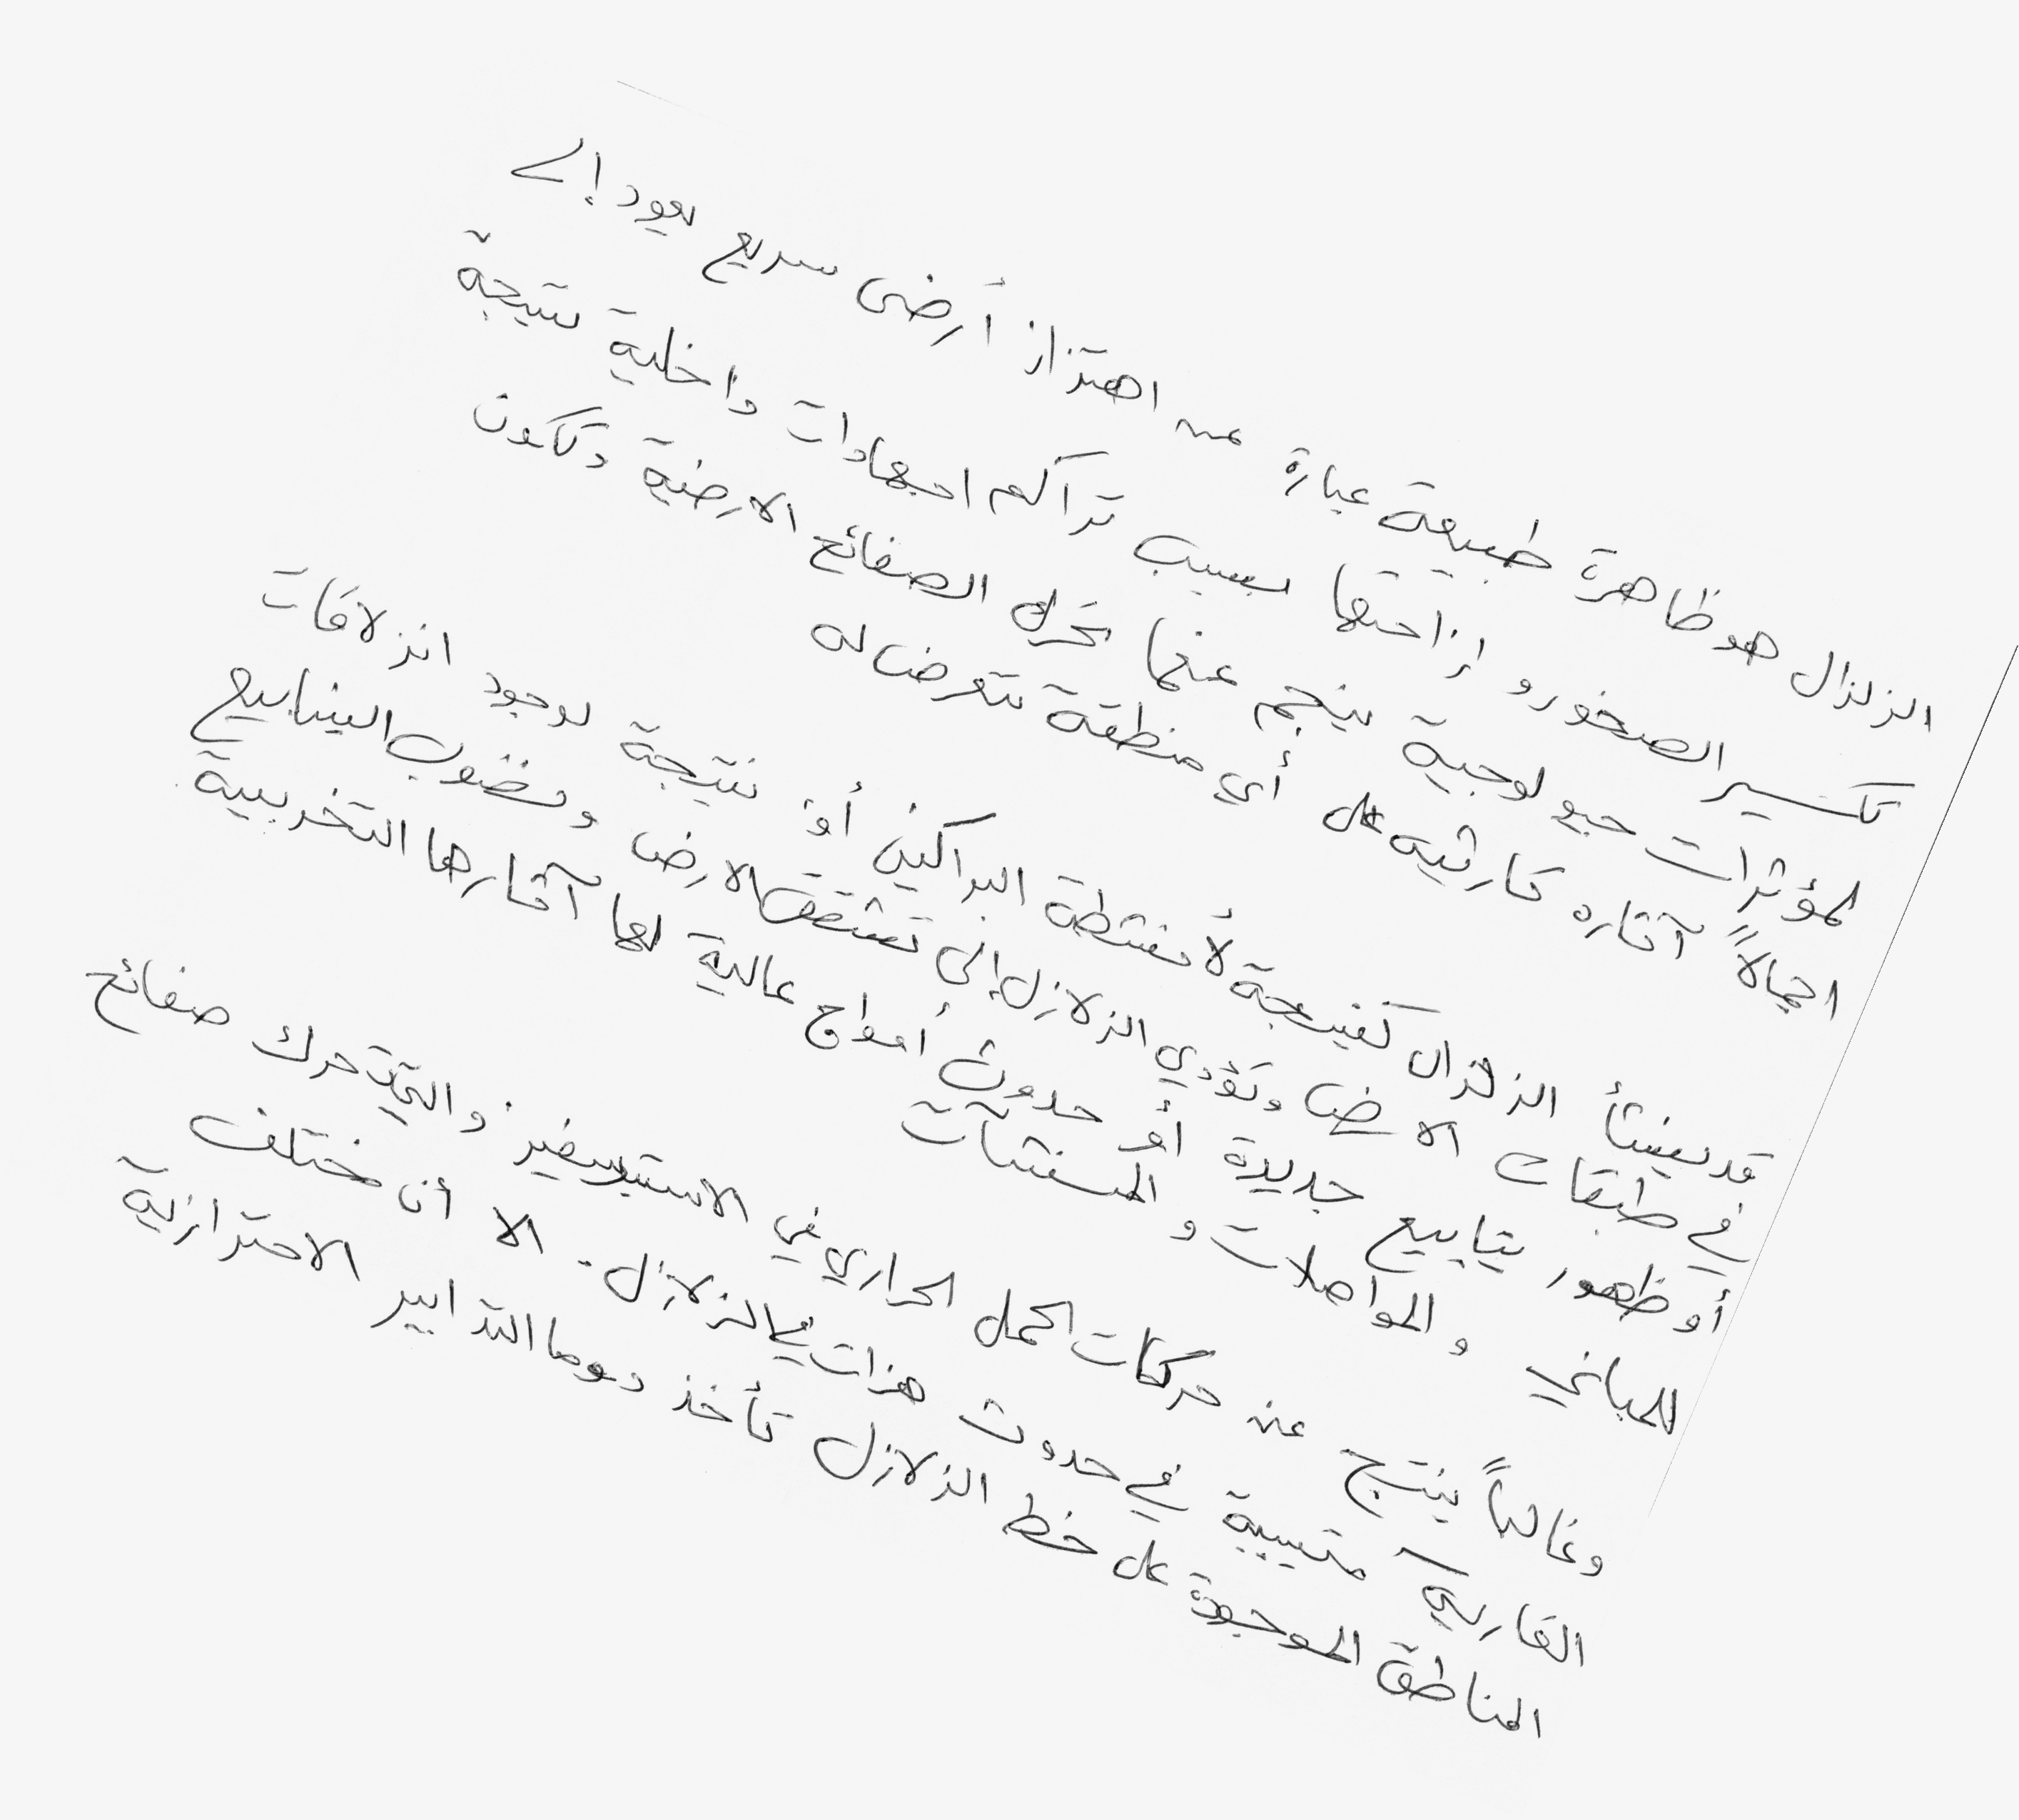 الزلزال هو ظاهرة طبيعة عبارة عن اهتزاز أرضى سريع يعود إلى
تكسير الصخور و ازاحتها بسبب تراكم اجهادات داخلية نتيجة
لمؤثرات جيولوجية ينجم عنها تحرك الصفائح الارضية وتكون
اجمالاً آثاره كارثيه على أي منطقة تتعرض له
قد ينشأ الزلزال كنيجة لأنشطة البراكين أو نتيجة لوجود انزلاقات
في طبقات الارض وتؤدي الزلازل إلى تشقق الارض ونضوب الينابيع
أو ظهور ينابيع جديدة أو حدوث أمواج عالية لها آثارها التخريبية
للمباني والمواصلات و المنشآت
وغالباً ينتج عن حركات الحمل الحراري في الاستيوسفير والتي تحرك صفائح
القارية متسببة في حدوث هزات في الزلازل. الا أن مختلف
المناطق الموجودة على خط الزلازل تأخذ دوما التدابير الاحترازية